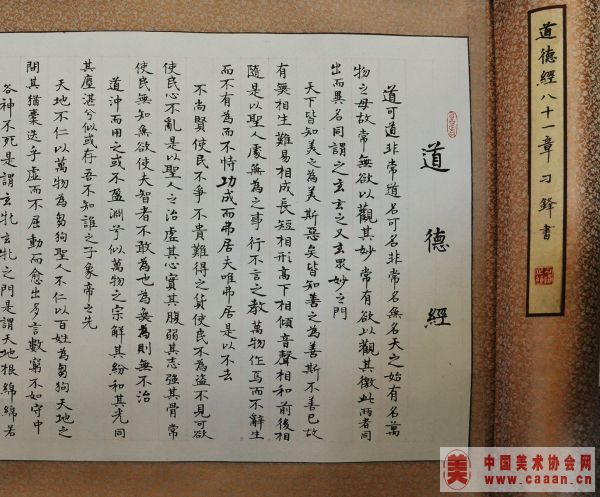 道德經八十一章 刁鋒書
道德經
道可道非常道名可名非常名無名天之始有名萬
物之母故常無欲以觀其妙常有欲以觀其徼此兩者同
出而異名同謂之玄玄之又玄眾妙之門
天下皆知美之為美斯惡矣皆知善之為善斯不善已故
有無相生難易相成長短相形高下相傾音聲相和前後相
隨是以聖人處無為之事行不言之教萬物作焉而不辭生
而不有為而不恃功成而弗居夫唯弗居是以不去
不尚賢使民不爭不貴難得之貨使民不為盜不見可欲
使民心不亂是以聖人之治虛其心實其腹弱其志強其骨常
使民無知無欲使夫智者不敢為也為無為則無不治
道沖而用之或不盈淵兮似萬物之宗解其紛和其光同
其塵湛兮似或存吾不知誰之子象帝之先
天地不仁以萬物為芻狗聖人不仁以百姓為芻狗天地之
間其猶橐迭乎虛而不屈動而愈出多言數窮不如守中
谷神不死是謂玄牝玄牝之門是謂天地根綿綿若
美
中国美术协会网
www.caaan.cn